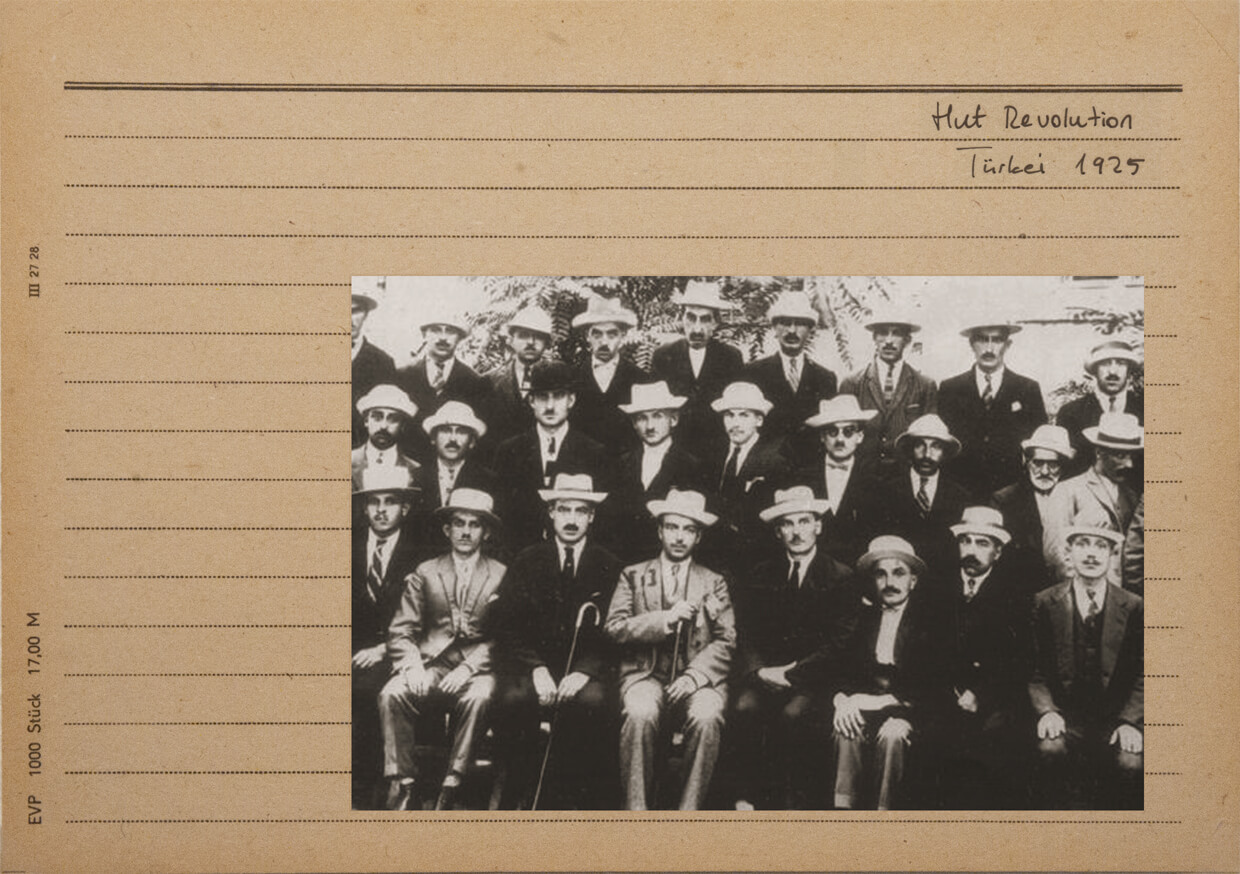 Hut Revolution
Türkei 1925
III 27 28
EVP 1000 Stück 17,00 M